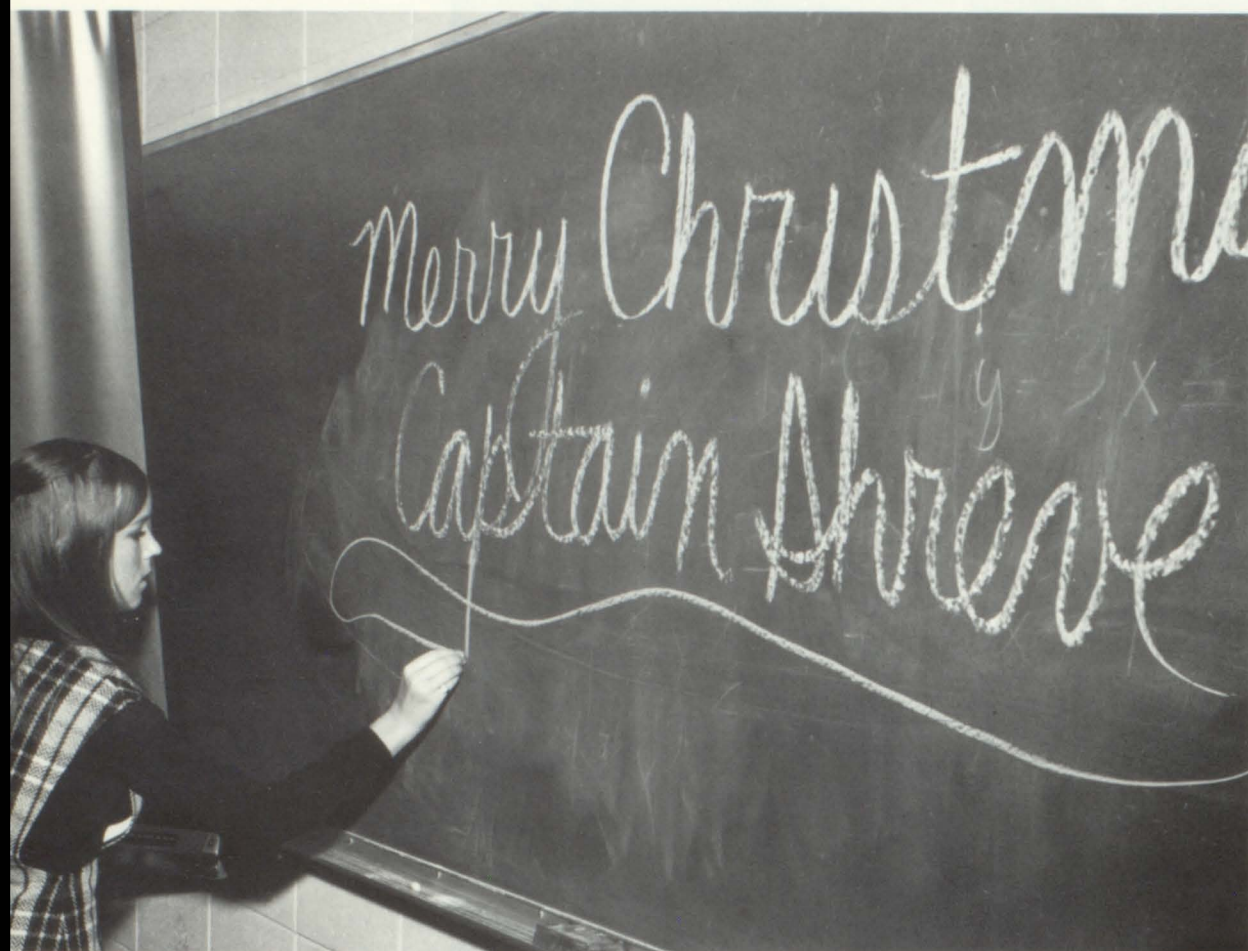 Merry Christma
Captain Shreve
y x